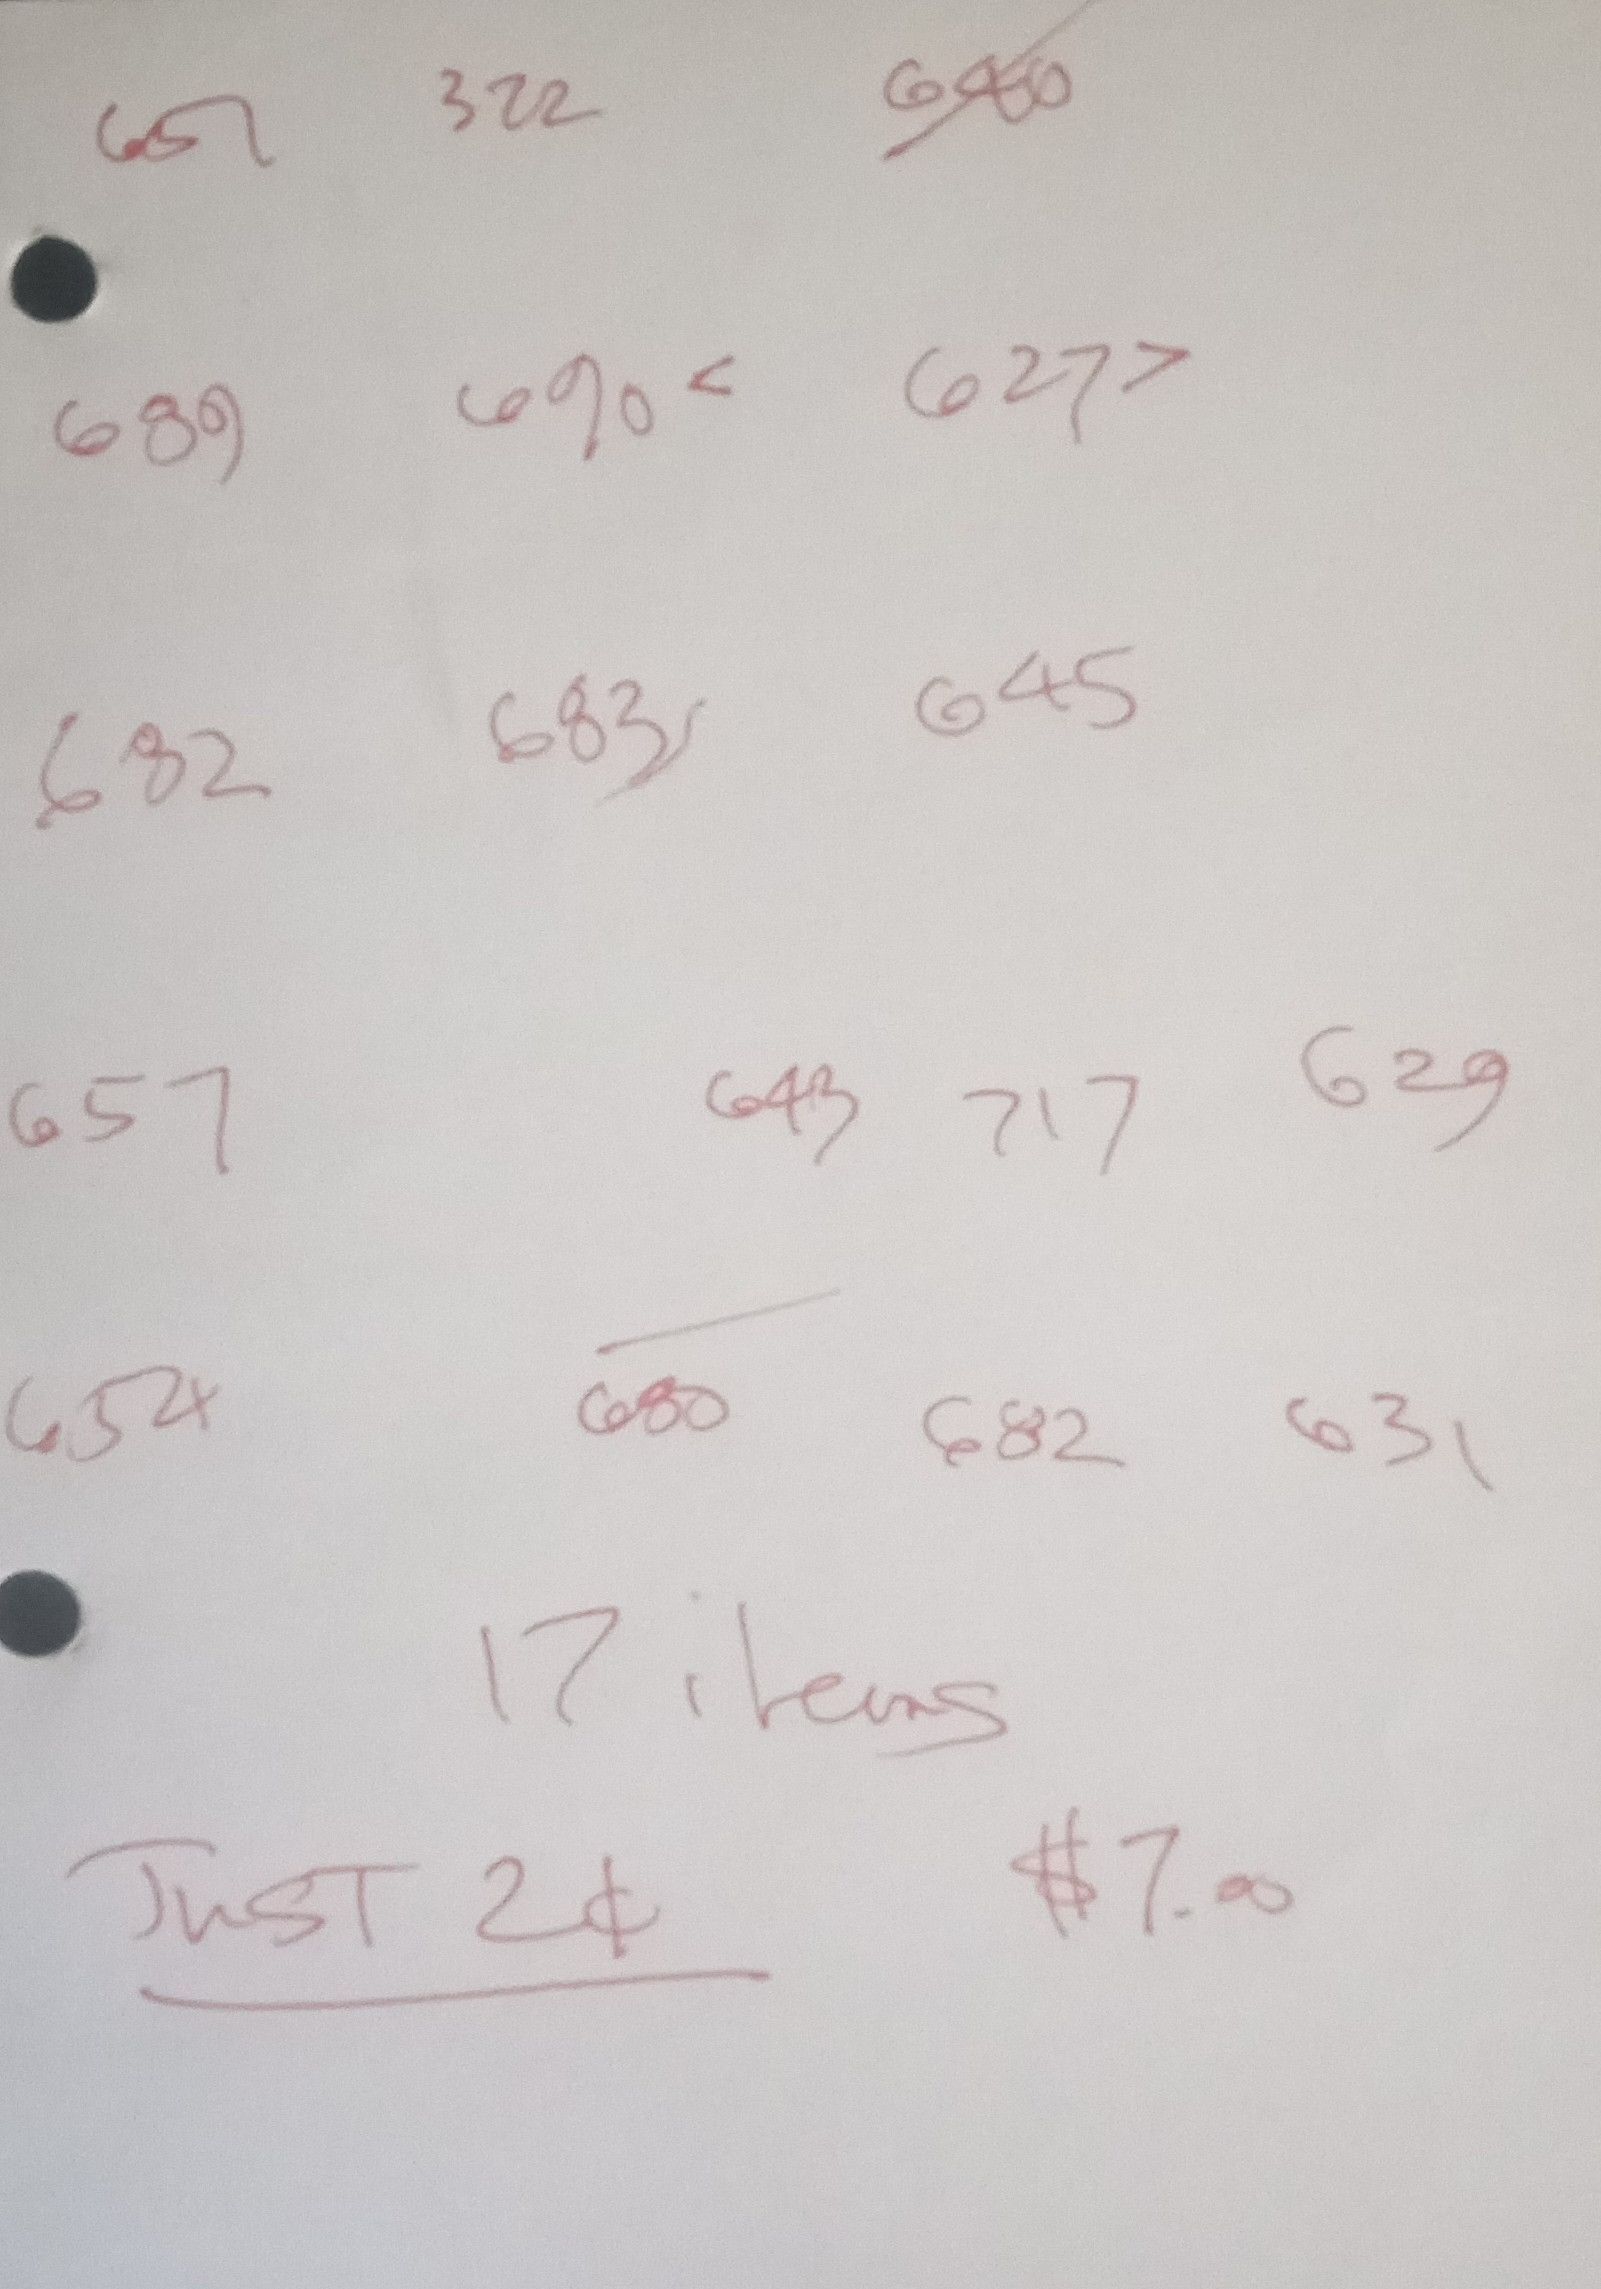 657 322
689 690 < 627 >
682 683 645
657 643 717 629
654 680 682 631
17 items
JUST 2¢ $7.00